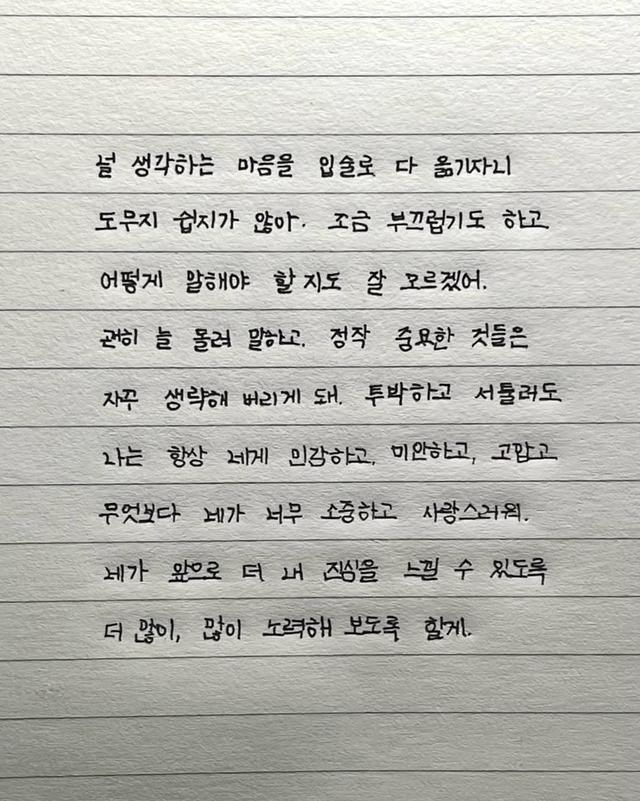 널 생각하는 마음을 입술로 다 옮기자니
도무지 쉽지가 않아. 조금 부끄럽기도 하고
어떻게 말해야 할 지도 잘 모르겠어.
괜히 늘 돌려 말하고, 정작 중요한 것들은
자꾸 생략해 버리게 돼. 투박하고 서툴러도
나는 항상 네게 민감하고, 미안하고, 고맙고
무엇보다 네가 너무 소중하고 사랑스러워.
네가 앞으로 더 내 진심을 느낄 수 있도록
더 많이, 많이 노력해 보도록 할게.